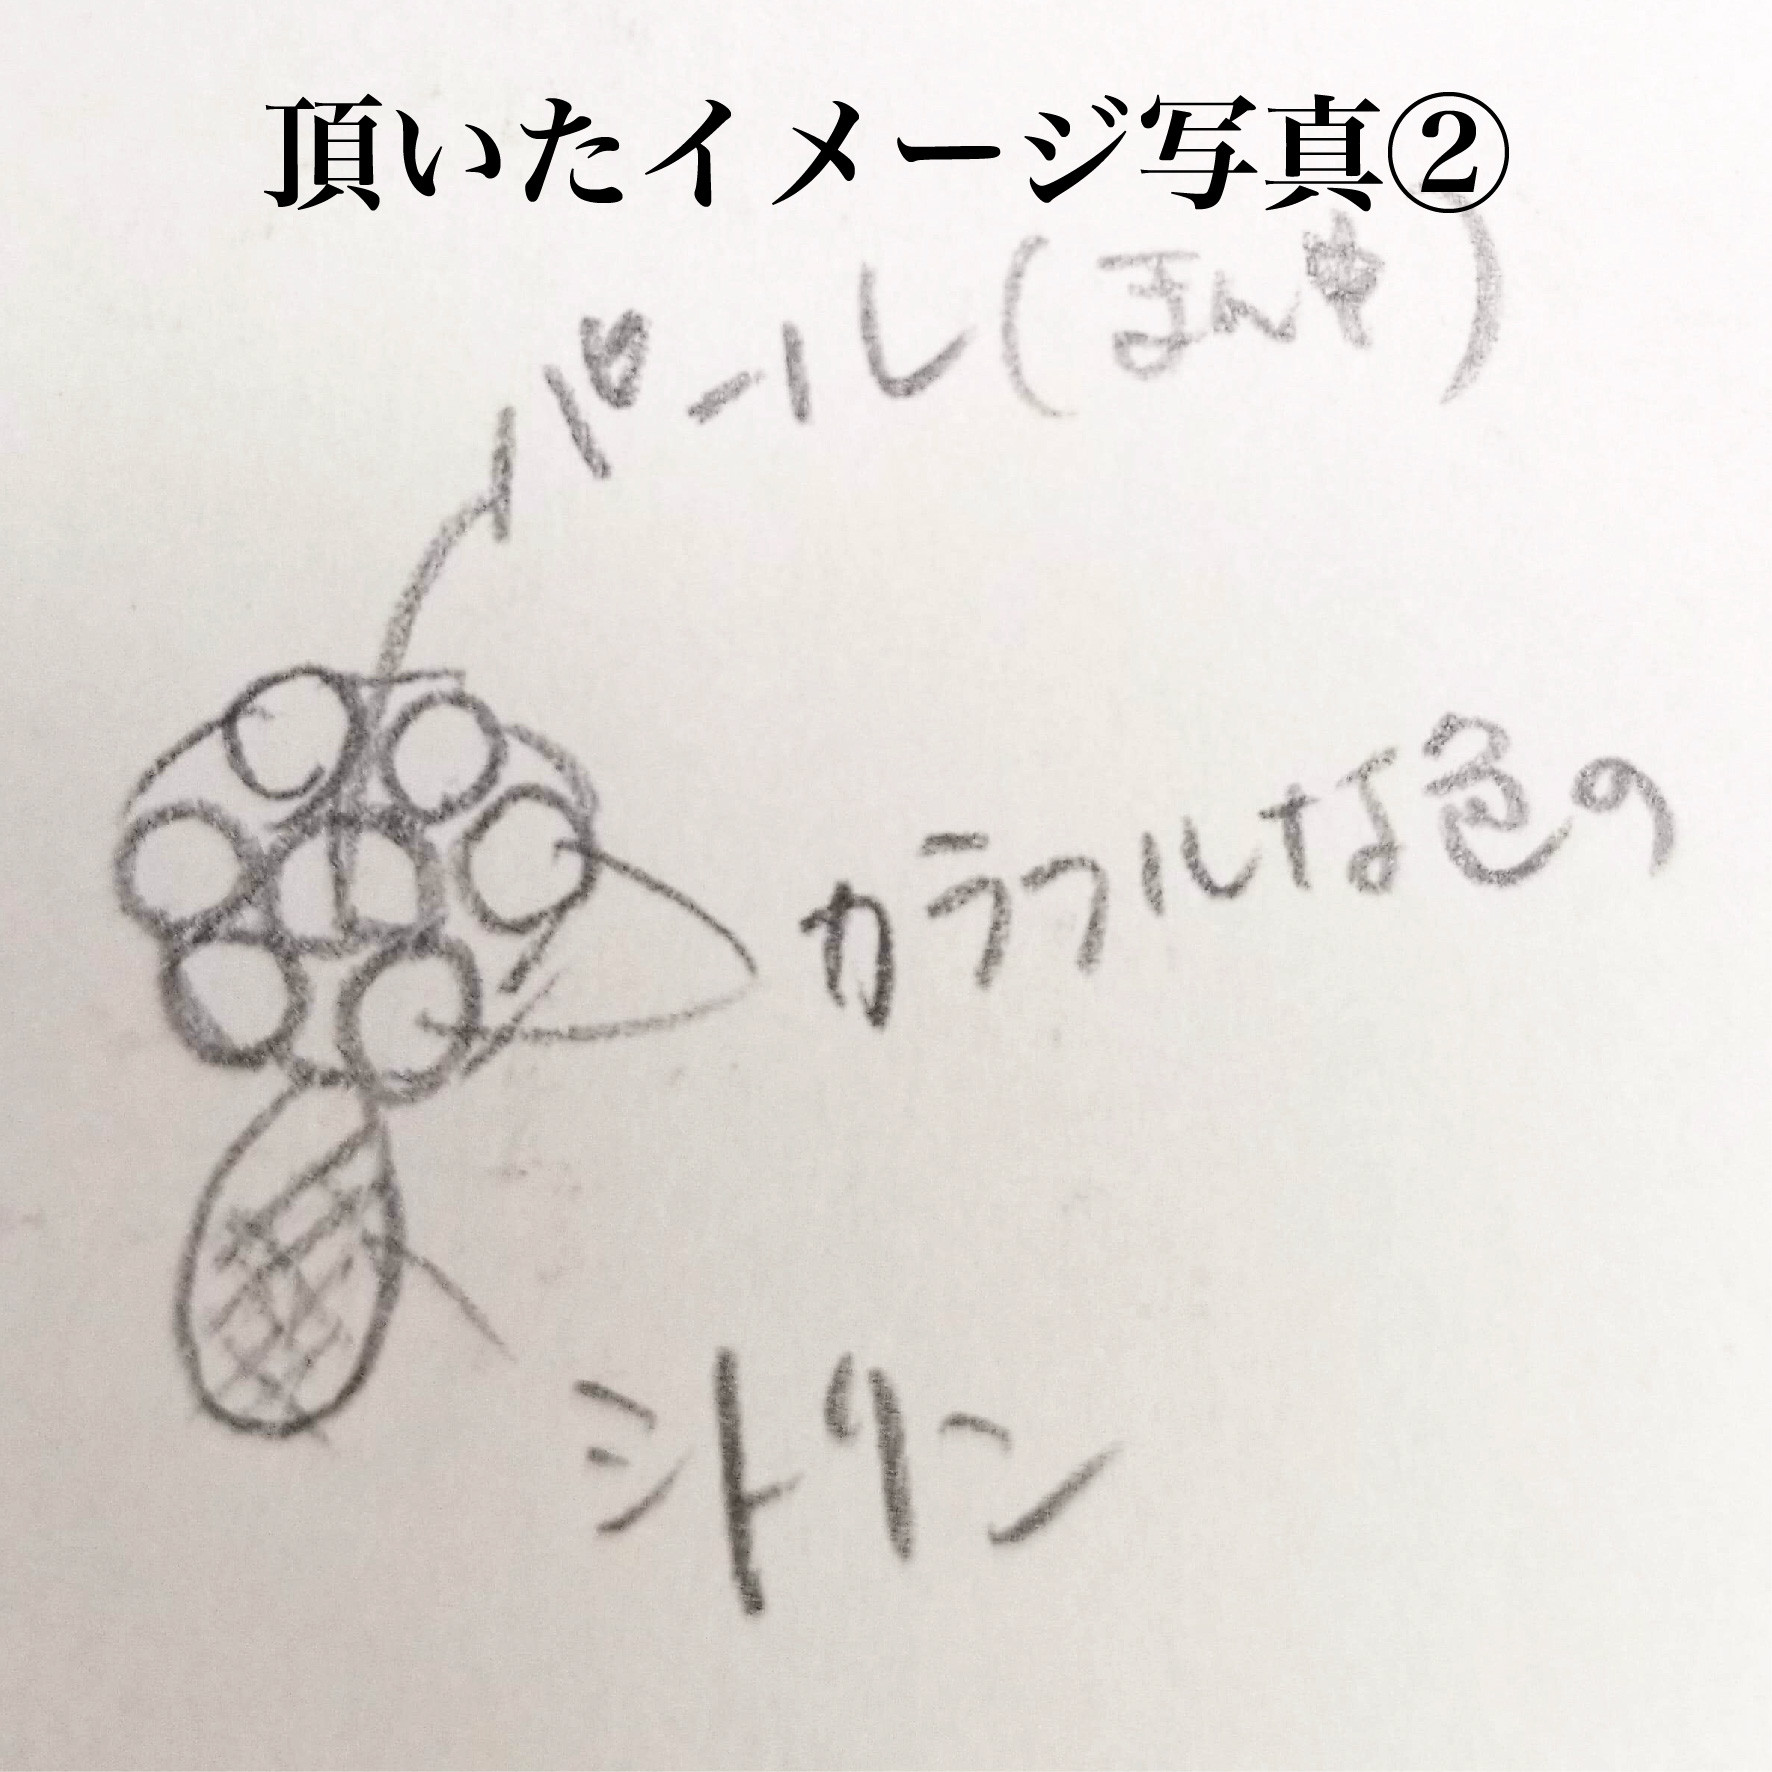 頂いたイメージ写真②
パール(まん中)
カラフルな色の
シトリン